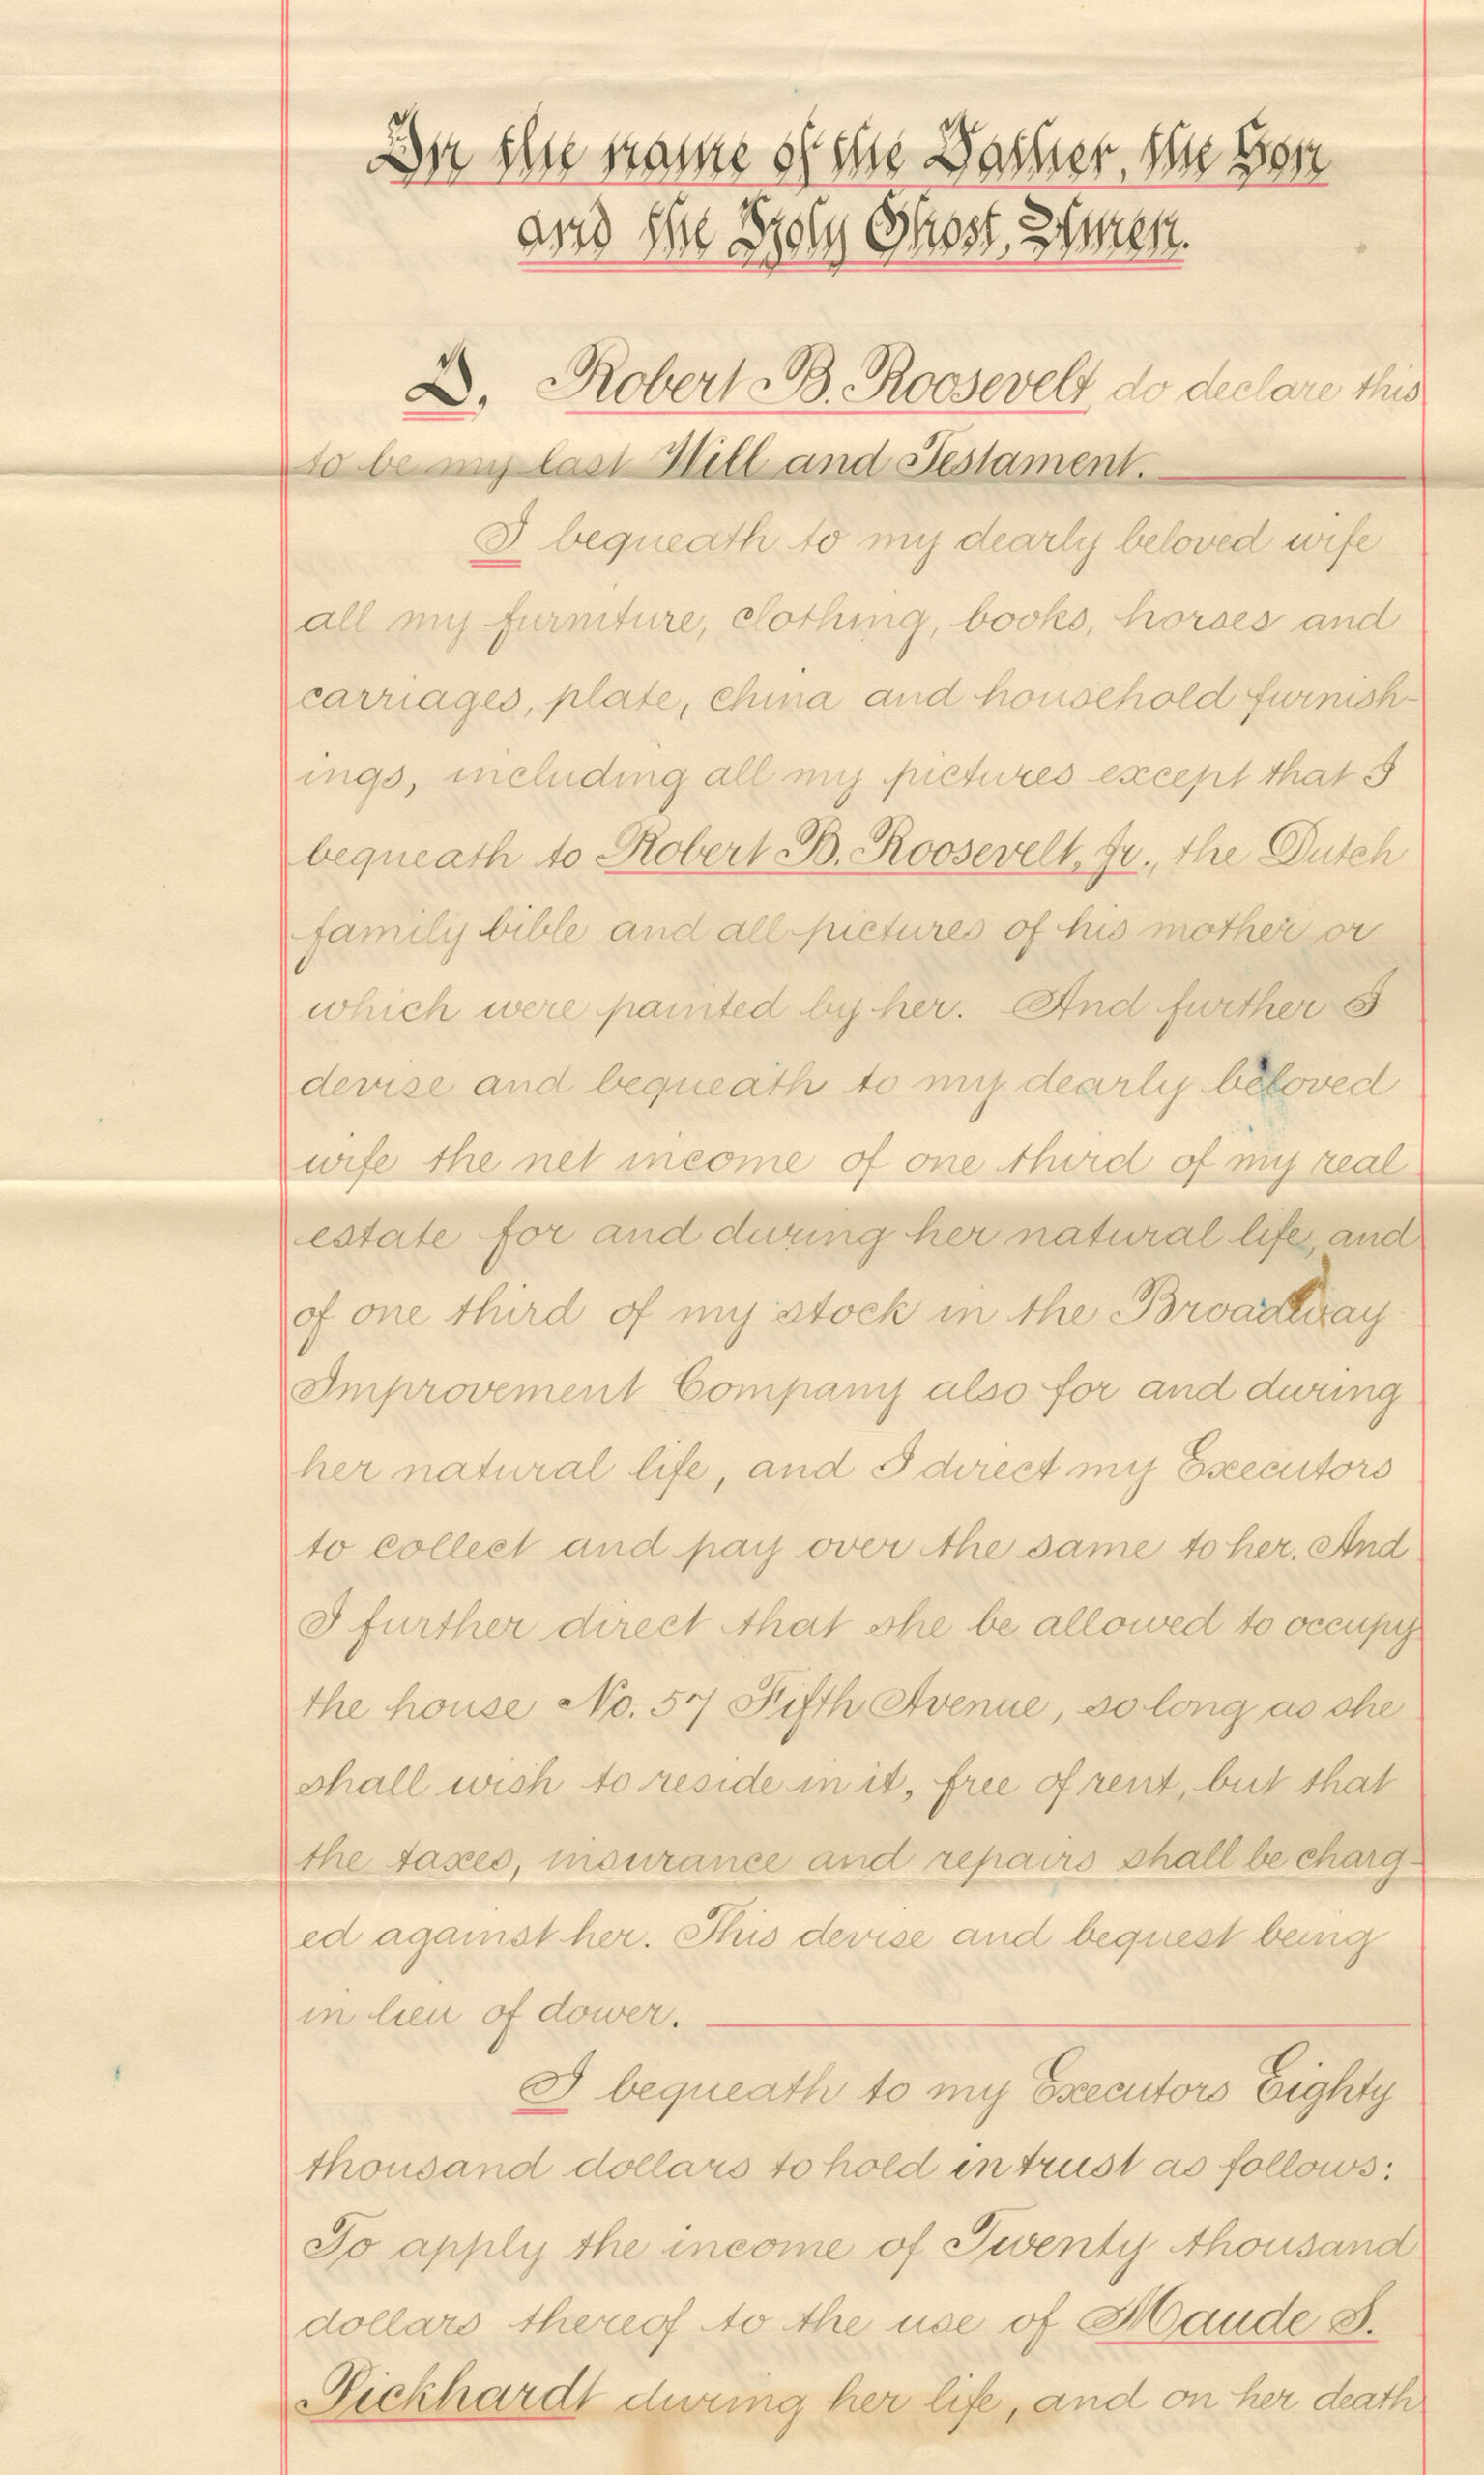 In the name of the Father, the Son
and the Holy Ghost, Amen.
I, Robert B. Roosevelt, do declare this
to be my last Will and Testament.
I bequeath to my dearly beloved wife
all my furniture, clothing, books, horses and
carriages, plate, china and household furnish-
ings, including all my pictures except that I
bequeath to Robert B. Roosevelt, Jr., the Dutch
family bible and all pictures of his mother or
which were painted by her. And further I
devise and bequeath to my dearly beloved
wife the net income of one third of my real
estate for and during her natural life, and
of one third of my stock in the Broadway
Improvement Company also for and during
her natural life, and I direct my Executors
to collect and pay over the same to her. And
I further direct that she be allowed to occupy
the house No. 57 Fifth Avenue, so long as she
shall wish to reside in it, free of rent, but that
the taxes, insurance and repairs shall be charg-
ed against her. This devise and bequest being
in lieu of dower.
I bequeath to my Executors Eighty
thousand dollars to hold in trust as follows:
To apply the income of Twenty thousand
dollars thereof to the use of Maude S.
Pickhardt during her life, and on her death